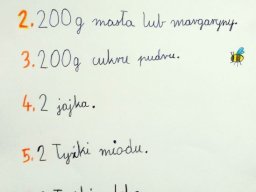 2. 200g masła lub margaryny.
3. 200g cukru pudru.
4. 2 jajka.
5. 2 łyżki miodu.